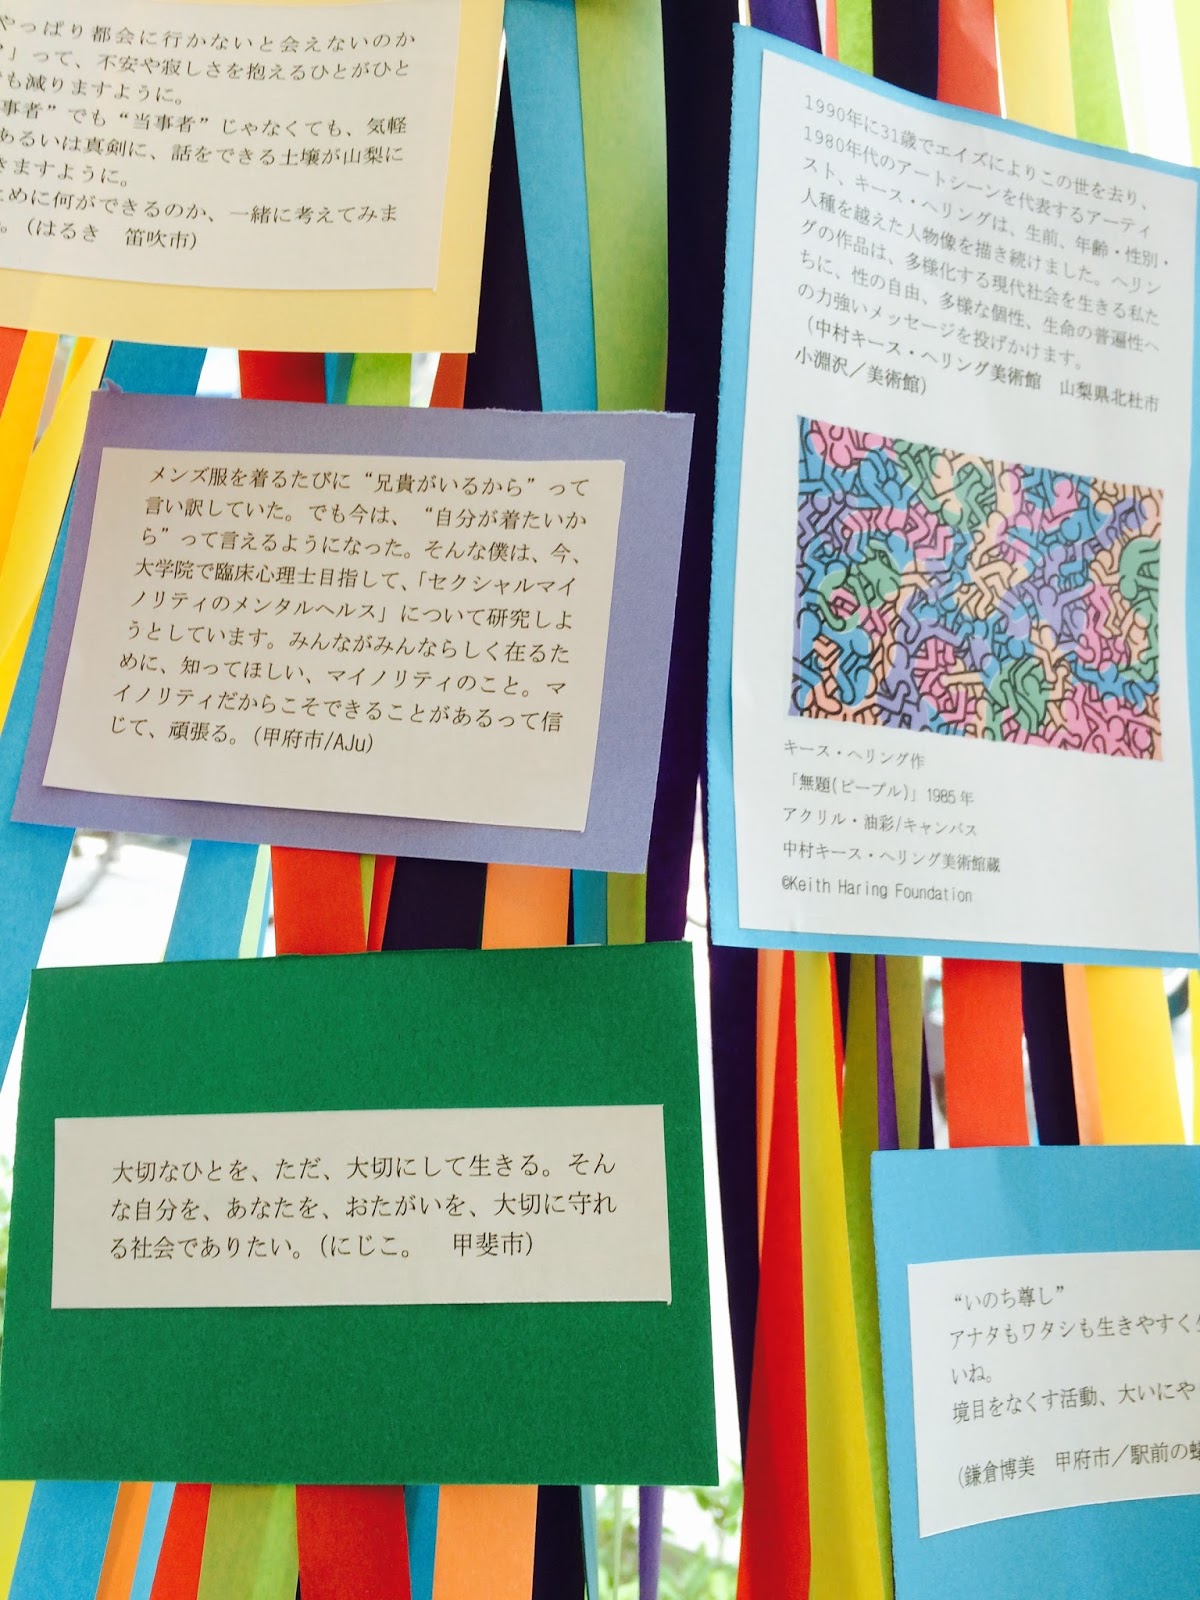 やっぱり都会に行かないと会えないのか
」って、不安や寂しさを抱えるひとがひと
も減りますように。
事者”でも“当事者”じゃなくても、気軽
あるいは真剣に、話をできる土壌が山梨に
きますように。
ために何ができるのか、一緒に考えてみま
。(はるき　笛吹市)
1990年に31歳でエイズによりこの世を去り、
1980年代のアートシーンを代表するアーティ
スト、キース・ヘリングは、生前、年齢・性別・
人種を越えた人物像を描き続けました。ヘリン
グの作品は、多様化する現代社会を生きる私た
ちに、性の自由、多様な個性、生命の普遍性へ
の力強いメッセージを投げかけます。
(中村キース・ヘリング美術館　山梨県北杜市
小淵沢／美術館)
キース・ヘリング作
「無題(ピープル)」1985年
アクリル・油彩/キャンバス
中村キース・ヘリング美術館蔵
©Keith Haring Foundation
メンズ服を着るたびに“兄貴がいるから”って
言い訳していた。でも今は、“自分が着たいか
ら”って言えるようになった。そんな僕は、今、
大学院で臨床心理士目指して、「セクシャルマイ
ノリティのメンタルヘルス」について研究しよ
うとしています。みんながみんならしく在るた
めに、知ってほしい、マイノリティのこと。マ
イノリティだからこそできることがあるって信
じて、頑張る。(甲府市/AJu)
大切なひとを、ただ、大切にして生きる。そん
な自分を、あなたを、おたがいを、大切に守れ
る社会でありたい。(にじこ。　甲斐市)
“いのち尊し”
アナタもワタシも生きやすく
いね。
境目をなくす活動、大いにや
(鎌倉博美　甲府市／駅前の